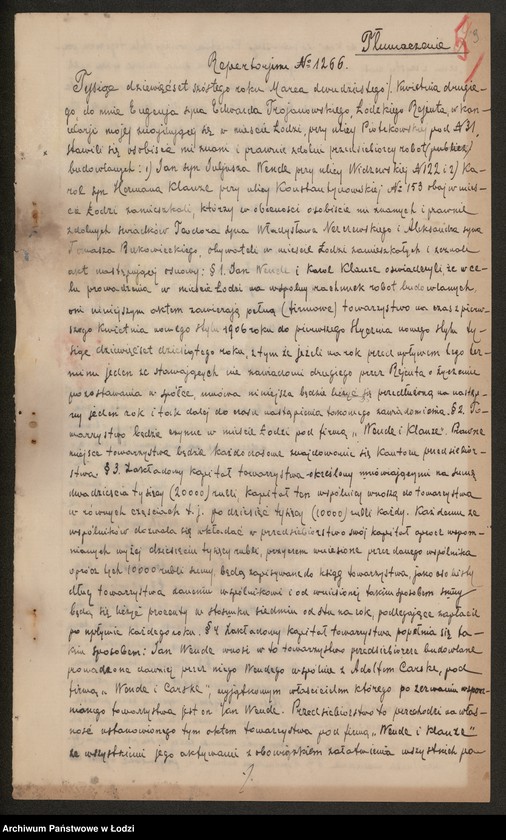 Tłumaczenie
Repertorjum № 1266.
Tysiąc dziewięćset szóstego roku Marca dwudziestego /. Kwietnia drugie-
go, do mnie Eugenja syna Edwarda Trojanowskiego, Łodzkiego Rejenta, w kan-
celarji mojej znajdującej się w mieście Łodzi, przy ulicy Piotrkowskiej pod № 31,
stawili się osobiście mi znani i prawnie zdolni przedsiębiorcy robot (publicz)
budowlanych: 1) Jan syn Juljusza Wende przy ulicy Widzewskiej № 122 i 2) Ka-
rol syn Hermana Klauze przy ulicy Konstantynowskiej № 153 obaj w mieś-
cie Łodzi zamieszkali, którzy w obecności osobiście mi znanych i prawnie
zdolnych świadków Teodora syna Władysława i Aleksandra syna
Tomasza Bukowieckiego, obywateli w mieście Łodzi zamieszkałych i zeznali
akt następującej osnowy: § 1. Jan Wende i Karol Klauze oświadczyli, że w ce-
lu prowadzenia w mieście Łodzi na wspólny rachunek robot budowlanych,
oni niniejszym aktem zawierają pełną (firmowe) towarzystwo na czas z pierw-
szego kwietnia nowego stylu 1906 roku do pierwszego Stycznia nowego stylu ty-
siąc dziewięćset dziesiątego roku, z tym że jeżeli na rok przed upływem tego ter-
minu jeden ze stawających nie zawiadomi drugiego przez Rejenta o życzeniu
pozostawania w spółce, umowa niniejsza będzie liczyć się przedłużoną na następ-
ny jeden rok i tak dalej do czasu nastąpienia takowego zawiadomienia. § 2. To-
warzystwo będzie czynne w mieście Łodzi pod firmą „Wende i Klauze". Prawne
miejsce towarzystwa będzie każdoczesne znajdowanie się kantoru przedsiębior-
stwa. § 3. Zakładowy kapitał towarzystwa określony umówiającymi na sumę
dwadzieścia tysięcy (20000) rubli kapitał ten wspólnicy wnoszą do towarzystwa
w równych częściach t. j. po dziesięć tysięcy (10000) rubli każdy. Każdemu ze
wspólników dozwala się wkładać w przedsiębiorstwo swój kapitał oprócz wspom-
nianych wyżej dziesięciu tysięcy rubli, przyczem wniesione przez danego wspólnika
oprócz tych 10000 rubli sumy, będą zapisywane do ksiąg towarzystwa, jako osobisty
dług towarzystwa danemu wspólnikowi i od wniesionej takim sposobem sumy
będą się liczyć procenty w stosunku siedmiu od sta na rok, podlegające zapłacie
po upływie każdego roku. § 4 Zakładowy kapitał towarzystwa popełnia się ta-
kim sposobem: Jan Wende wnosi w to towarzystwo przedsiębiorcze budowlane
prowadzone dawniej przez niego Wendego wspólnie z Adolfem Carske, pod
firmą „Wende i Carske", wyjątkowym właścicielem którego po zerwaniu wspom-
nianego towarzystwa jest on Jan Wende. Przedsiębiorstwo to przechodzi na włas-
ność ustanowionego tym aktem towarzystwa pod firmą „Wende i Klauze"
ze wszystkiemi jego aktywami z obowiązkiem załatwienia wszystkich pa-
Archiwum Państwowe w Łodzi